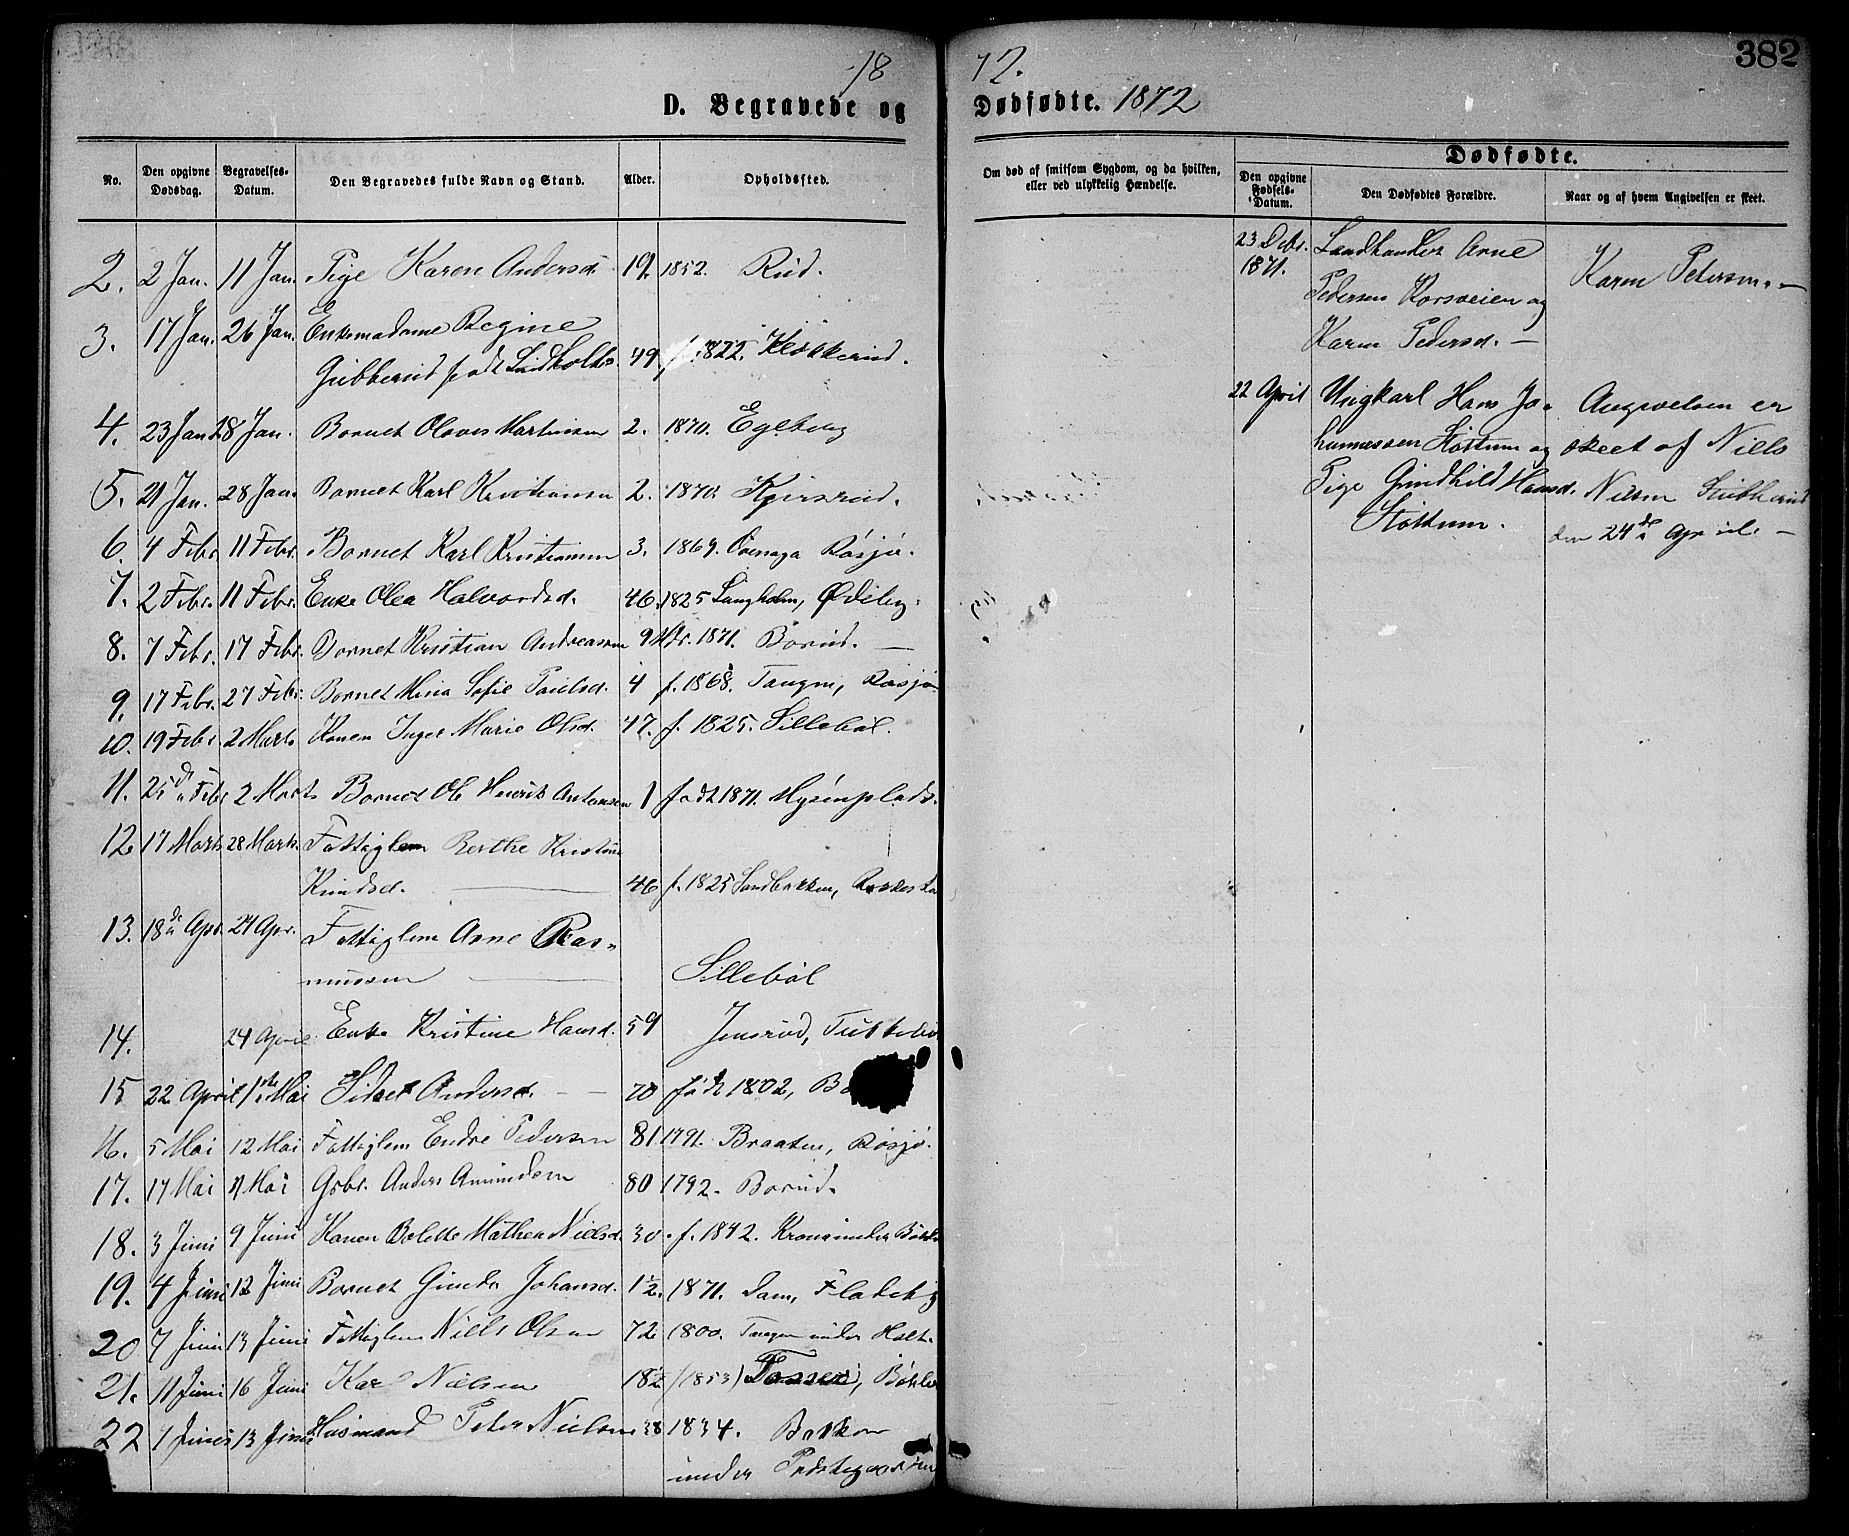 382
18
72.
D. Begravede og
Dødfødte. 1872
No.
Den opgivne Dødsdag.
Begravelses-Datum.
Den Begravedes fulde Navn og Stand.
Alder.
Opholdssted.
Om død af smitsom Sygdom, og da hvilken, eller ved ulykkelig Hændelse.
Dødfødte.
Den opgivne Fødsels-Datum.
Den Dødfødtes Forældre.
Naar og af hvem Angivelsen er skeet.
2. 2 Jan. 11 Jan. Pige Karen Andersd. 19. 1852. Rud.
3. 17 Jan. 26 Jan. Enkemadame Regine
Gubberud født 49. f. 1822. Klokkerud.
4. 23 Jan. 28 Jan. Barnet Olaves Martinsen 2. 1870. Egeberg
5. 21 Jan. 28 Jan. Barnet Karl Kristiansen 2. 1870.
6. 4 Febr. 11 Febr. Barnet Karl Kristiansen 3. 1869. Røsjø.
7. 2 Febr. 11 Febr. Enke Olea Halvorsd. 46. 1825 Langholm, Ødeby.
8. 7 Febr. 17 Febr. Barnet Kristian Andreassen 9 Mdr. 1871. Borud. —
9. 17 Febr. 27 Febr. Barnet Mina Sofie Paulsd. 4 f. 1868. Tangen, Røsjø
10. 19 Febr. 2 Marts Konen Inger Marie Olsd. 47. f. 1825. Sillebøl.
11. 25de Febr 2 Marts Barnet Ole Henrik Antonsen 1 født 1871. Mysenplads.
12. 17 Marts 28 Marts. Fattiglem Berthe Kristine
Knudsd. — 46 f. 1825 Sandbakken,
13. 18de Apr. 24 Apr. Fattiglem Arne Ras-
mussen — Sillebøl
14. 24 April Enke Kristine Hansd. 59 Jensrud,
15 22 April 1ste Mai Sidsel Andersd. — 70 født 1802, B
16. 5 Mai 12 Mai Fattiglem Endre Pedersen 81 1791. Braaten, Røsjø.
17. 17 Mai Mai Gbr. Anders Amundsen 80 1792. Borud.
18. 3 Juni 9 Juni Konen Bolette Mathea Nielsd. 30. f. 1842. under
19. 4 Juni 12 Juni Barnet Johansd. 1½. 1871. Dam, Fladeby
20 7 Juni 13 Juni Fattiglem Niels Olsen 72 1800. Tangen under Holt.
21. 11 Juni 16 Juni Karl Nielsen 18½ (1853)
22 1 Juni 13 Juni Husmand Peter Nielsen 38 1834. Bakken
under Præstegaarden
23 Debr. 1871.
Landhandler Arne
Pedersen Korsveien og
Karen Pedersd. —
Karen Petersen. —
22 April
Ungkarl Hans Jo-
hannessen Støttum og
Pige Gundhild Hansd.
Støttum.
Angivelsen er
skeet af Niels
Nilsen Gubberud
den 24de April. —